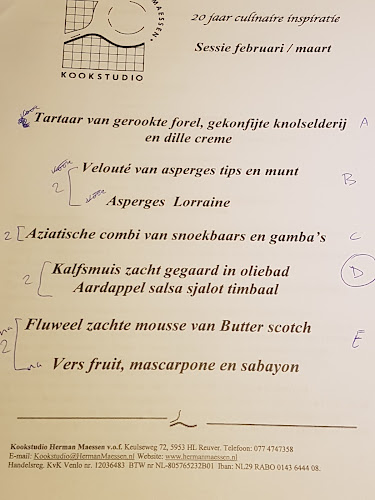 MAESSEN
KOOKSTUDIO
20 jaar culinaire inspiratie
Sessie februari / maart
voor
Tartaar van gerookte forel, gekonfijte knolselderij A
en dille creme
voor
Velouté van asperges tips en munt
2 B
voor
Asperges Lorraine
2 Aziatische combi van snoekbaars en gamba's C
Kalfsmuis zacht gegaard in oliebad
2 D
Aardappel salsa sjalot timbaal
na
Fluweel zachte mousse van Butter scotch
2 E
na
Vers fruit, mascarpone en sabayon
Kookstudio Herman Maessen v.o.f. Keulseweg 72, 5953 HL Reuver. Telefoon: 077 4747358
E-mail: Kookstudio@HermanMaessen.nl Website: www.hermanmaessen.nl
Handelsreg. KvK Venlo nr. 12036483 BTW nr NL-805765232B01 Iban: NL29 RABO 0143 6444 08.